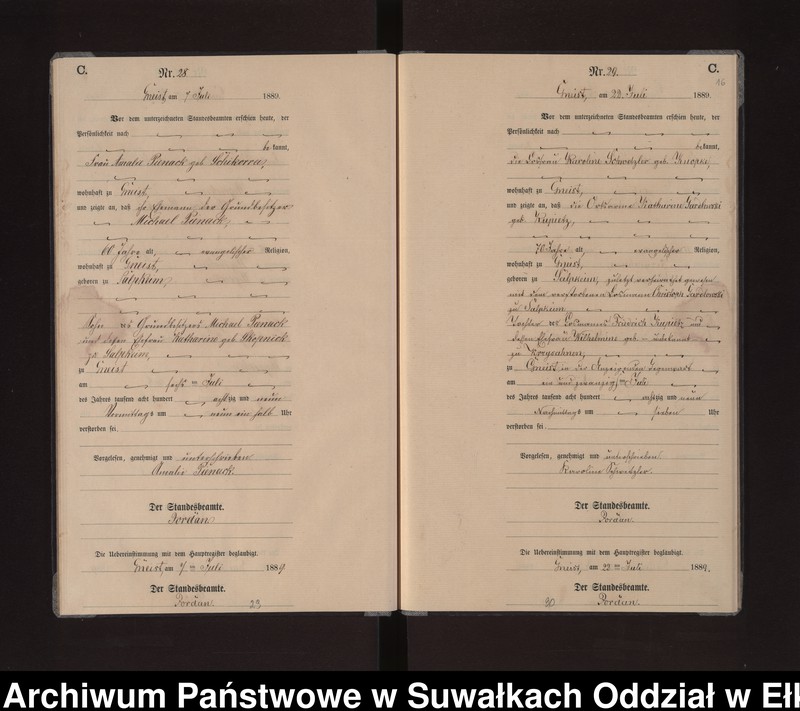 C.
Nr. 28
Gneist am 7 Juli 1889.
Vor dem unterzeichneten Standesbeamten erschien heute, der
Persönlichkeit nach
bekannt,
Frau Amalie Panack geb
wohnhaft zu Gneist,
und zeigte an, daß ihr Ehemann, der Grundbesitzer
Michael Panack,
60 Jahre alt, evangelischer Religion,
wohnhaft zu Gneist,
geboren zu Salpkeim,
Sohn des Grundbesitzers Michael Panack
und dessen Ehefrau Katharine geb Skopnick
zu Salpkeim,
zu Gneist
am sechs ten Juli
des Jahres tausend acht hundert achtzig und neun
Vormittags um neun ein halb Uhr
verstorben sei.
Vorgelesen, genehmigt und unterschrieben
Amalie Panack.
Der Standesbeamte.
Jordan
Die Uebereinstimmung mit dem Hauptregister beglaubigt.
Gneist, am 7 ten Juli 1889
Der Standesbeamte.
Jordan
29
C.
16
Nr. 29.
Gneist, am 22. Juli 1889.
Vor dem unterzeichneten Standesbeamten erschien heute, der
Persönlichkeit nach
bekannt,
die Losfrau Karoline Schwetzler geb.
wohnhaft zu Gneist,
und zeigte an, daß die Ortsarme Katharine
geb.
70 Jahre alt, evangelischer Religion,
wohnhaft zu Gneist,
geboren zu Salpkeim, zuletzt verheirathet gewesen
mit dem verstorbenen Losmann Christoph
zu Salpkeim
Tochter des Losmanns Friedrich und
dessen Ehefrau Wilhelmine geb unbekannt
zu
zu Gneist in der Anzeigenden Gegenwart
am ein und zwanzig ten Juli
des Jahres tausend acht hundert achtzig und neun
Nachmittags um sieben Uhr
verstorben sei.
Vorgelesen, genehmigt und unterschrieben
Karoline Schwetzler.
Der Standesbeamte.
Jordan.
Die Uebereinstimmung mit dem Hauptregister beglaubigt.
Gneist, am 22 ten Juli 1889.
Der Standesbeamte.
30 Jordan.
Archiwum Państwowe w Suwałkach Oddział w Ełk